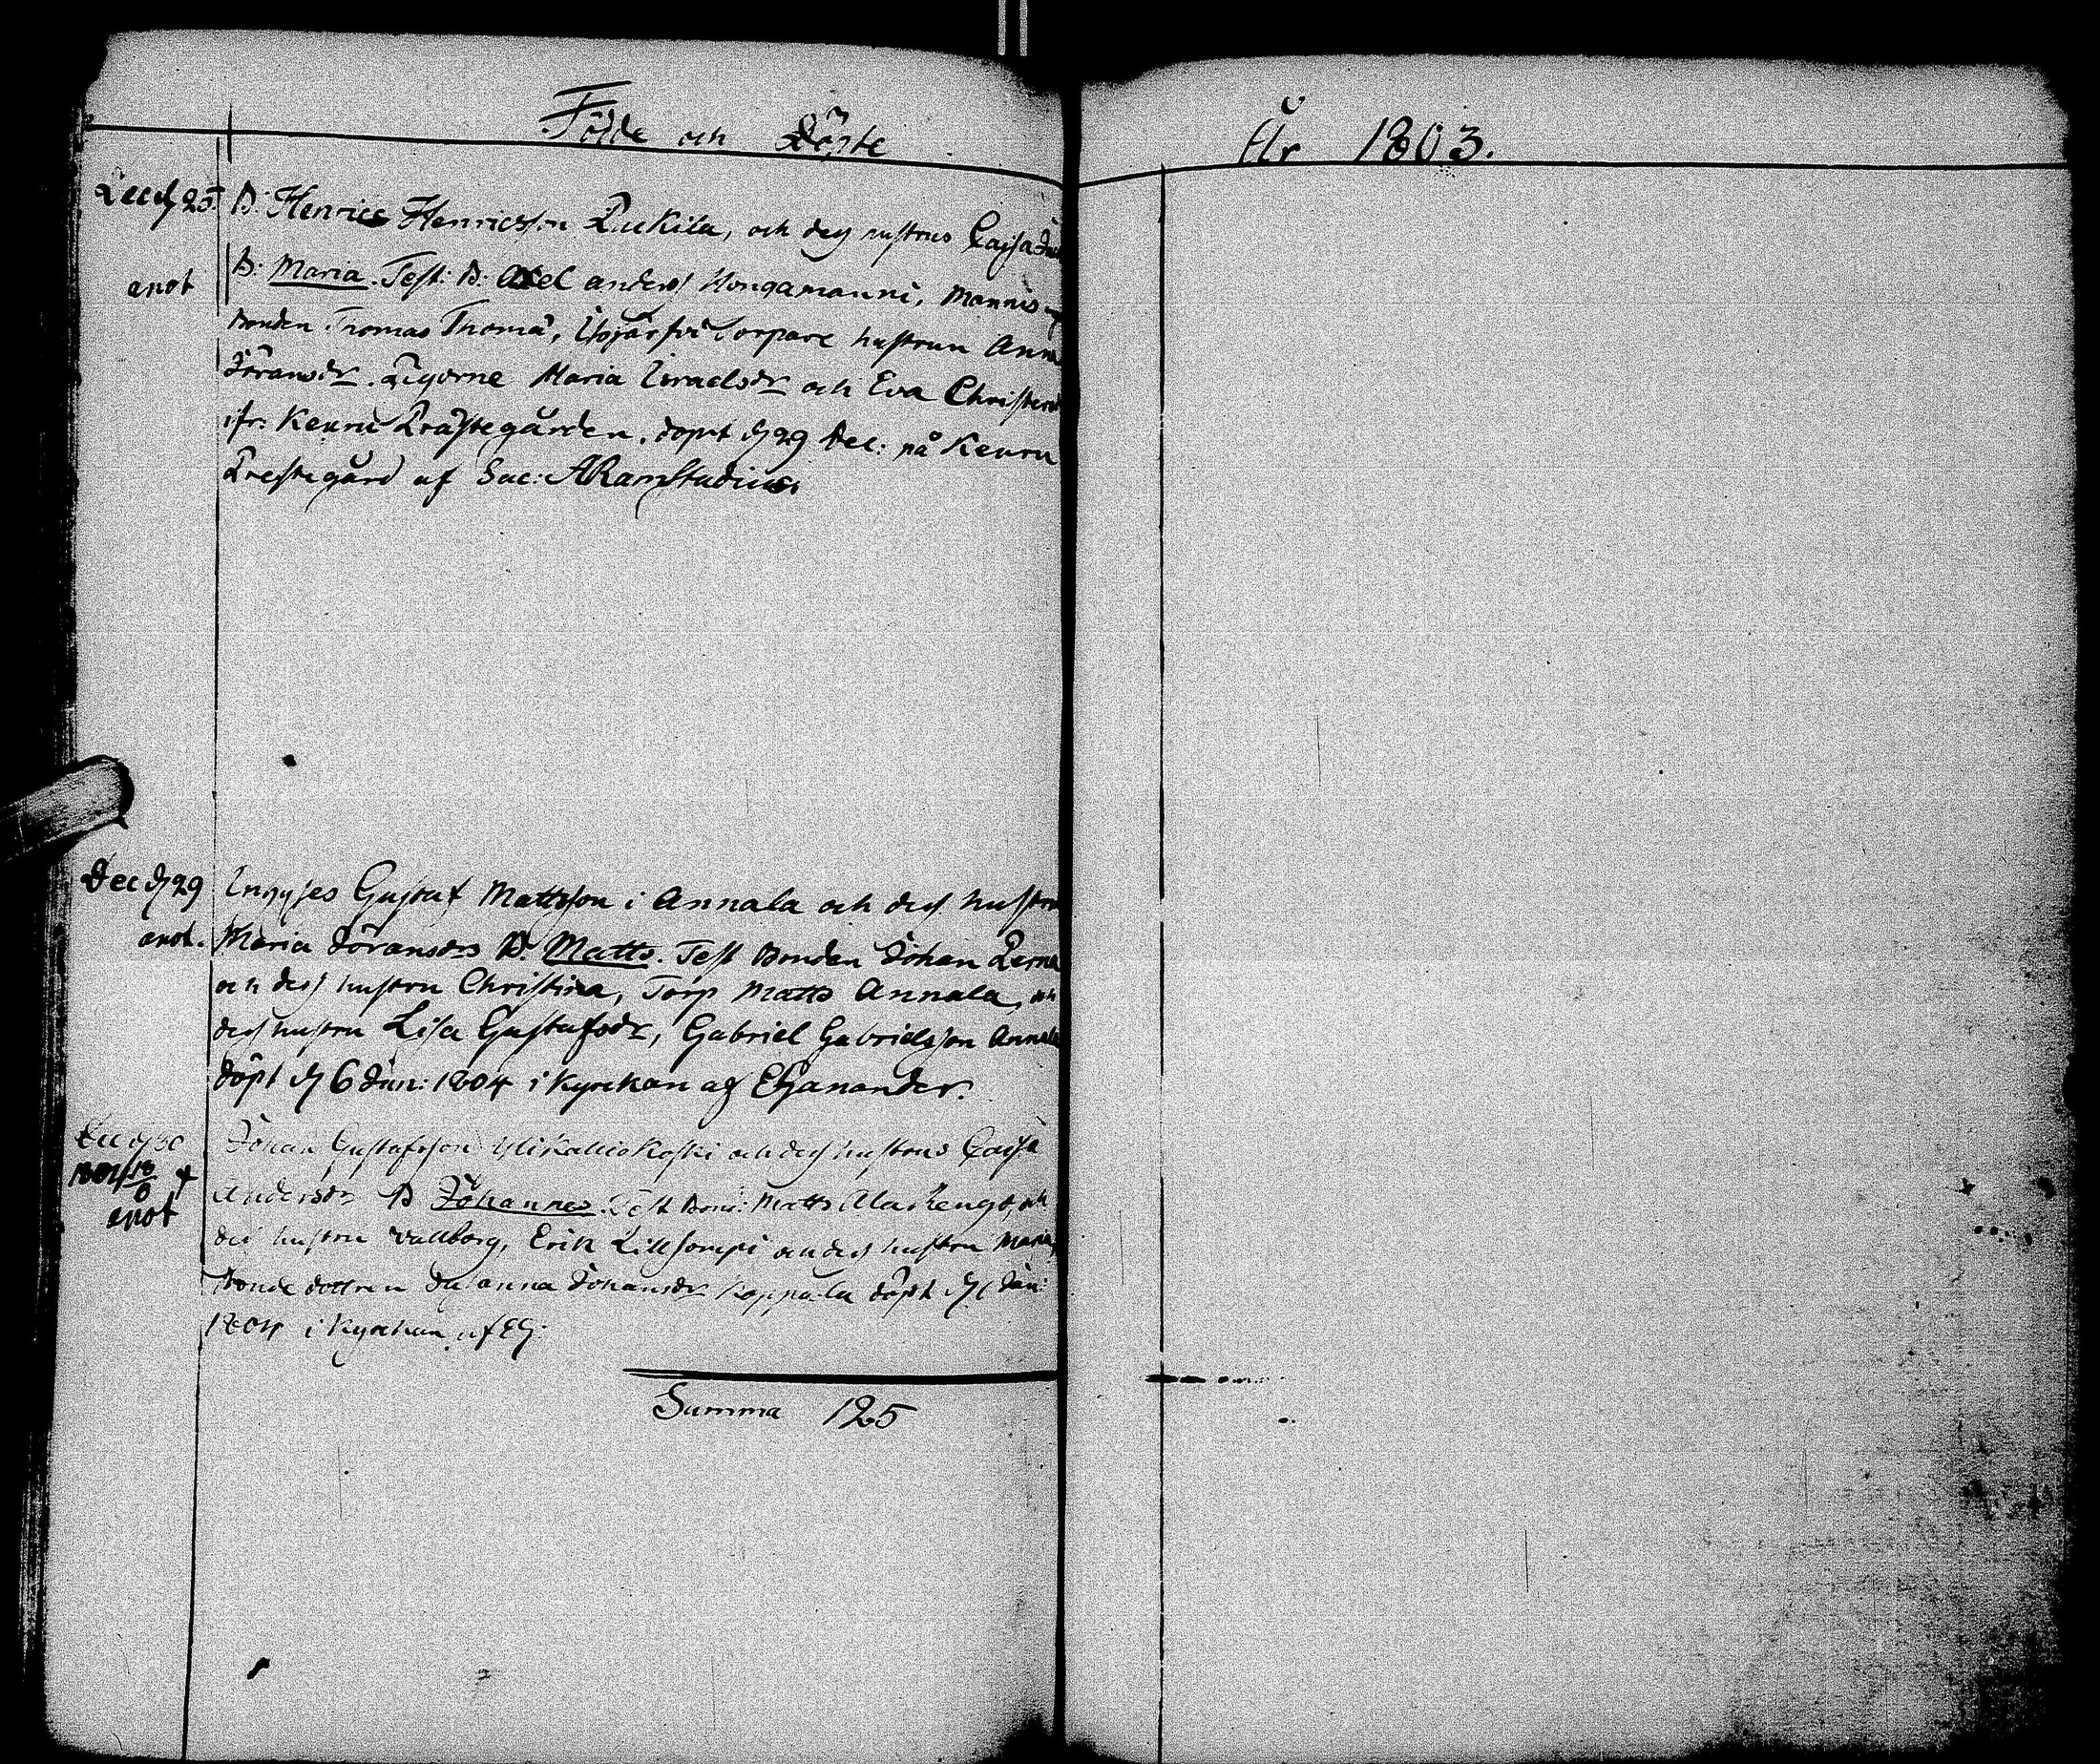 Födde och Döpte
År 1803.
Dec d 25. B: Henric Henricsson Pukila, och dess hustrus Cajsa
anot B: Maria. Test: B: Axel Anders Hongamanni, Mannis
Bonden Thomas Thomæ, Torpare hustrun Anna
Jöransdr. Pigorne Maria Israelsdr och Eva Christers
ifr: Keuru Prästegården. döpt d 29 Dec: på Keuru
Prestegård af Sac: ARamStadius
Dec d 29 Gustaf Mattsson i Annala och dess hustru
anot. Maria Jöransdrs B. Matts. Test Bonden Johan
och dess hustru Christina, Torp Matts Annala, och
dess hustru Lisa Gustafsdr, Gabriel Gabrielsson Annala
döpt d 6 Jan: 1804 i Kyrckan af EGanander.
Dec d 30 Johan Gustafsson Ylikalliokoski och dess hustrus Cajsa
1804 18/8 †
anot Andersdr B Johannes. Test Bond: Matts och
dess hustru Vallborg, Erik och dess hustru Maria,
Bonde dottren Anna Johansdr Koppala döpt d 6 Jan:
1804 i Kyrckan af EG:
Summa 125